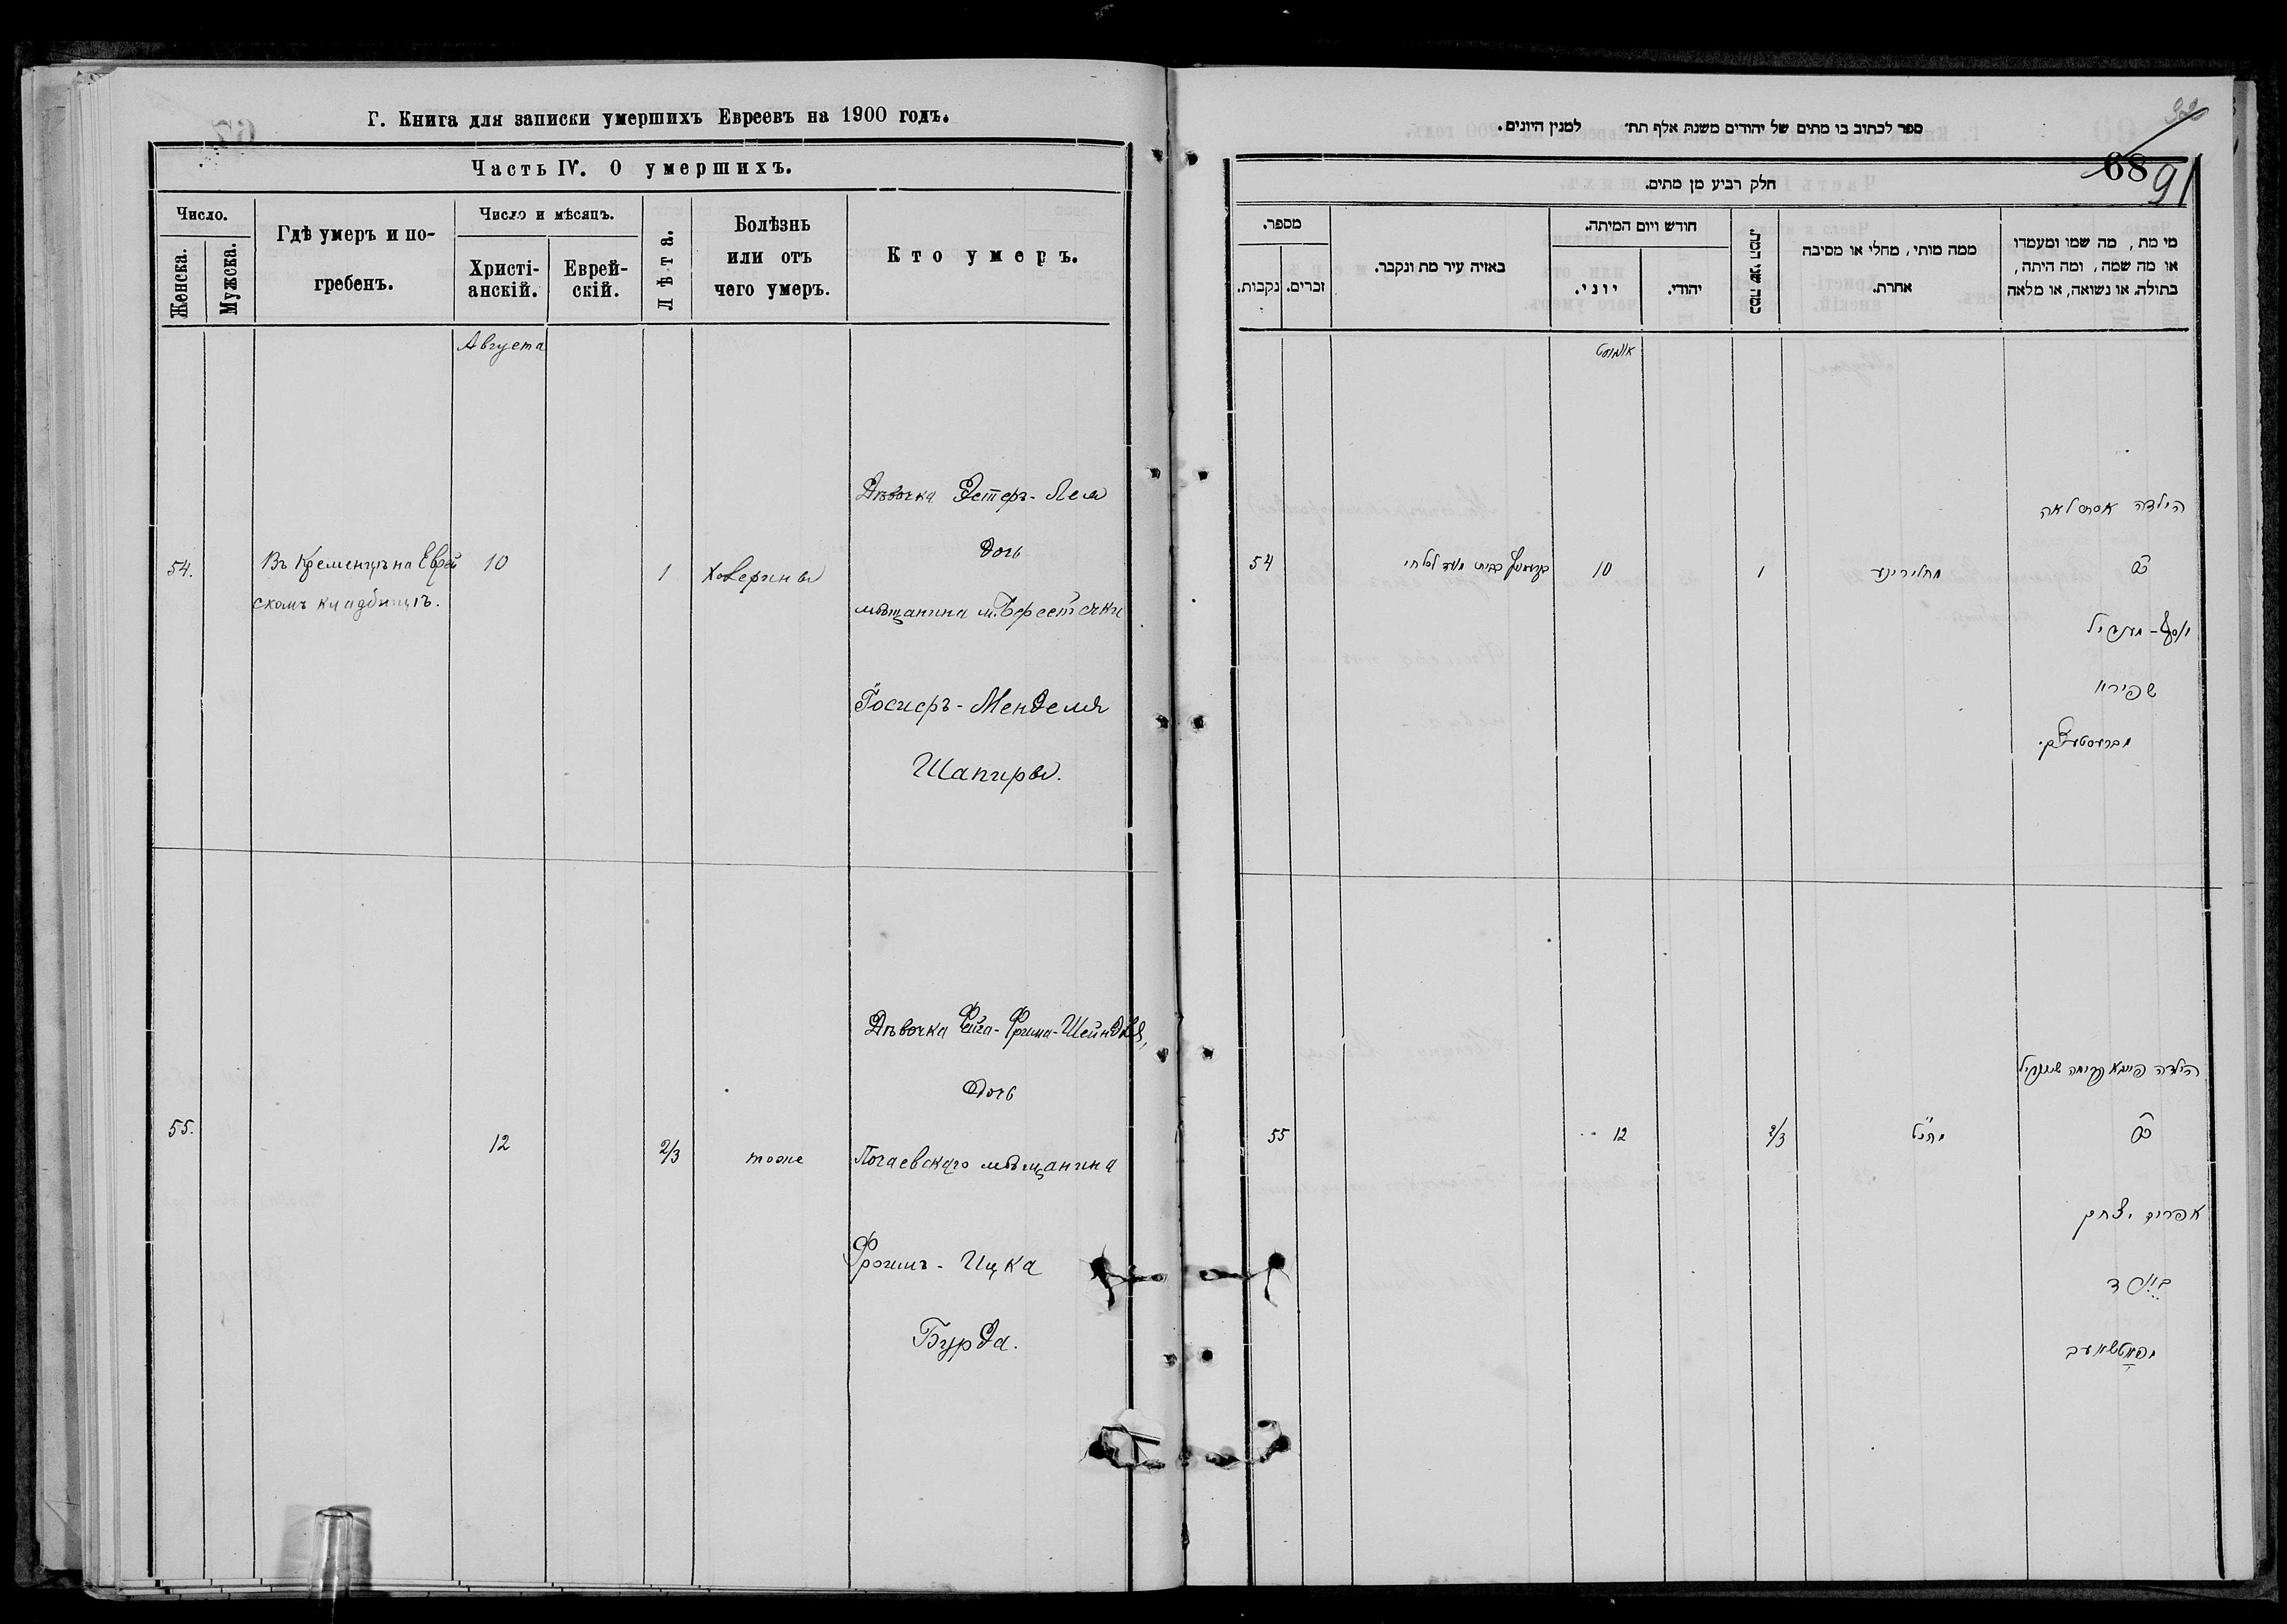 Г. Книга для записки умершихъ Евреевъ на 1900 годъ.
Часть IV. О умершихъ.
Число.
Женска.
Мужска.
Гдѣ умеръ и по-
гребенъ.
Число и мѣсяцъ.
Христі-
анскій.
Еврей-
скій.
Лѣта.
Болѣзнь
или отъ
чего умеръ.
Кто умеръ.
Августа
54.
Въ Кременцѣ на Еврей
скомъ кладбищѣ.
10
1
Холерины
Дѣвочка Эстеръ-Лея
дочь
мѣщанина м. Берестечки
Іосиеръ-Менделя
Шапиры.
55.
12
2/3
тоже
Дѣвочка Фейга-Фрима-Шейндля,
дочь
Почаевскаго мѣщанина
Фроимъ-Ицка
Бурда.
ספר לכתוב בו מתים של יהודים משנת אלף תת׳ למנין היונים.
68
91
חלק רביע מן מתים.
מספר.
נקבות.
זכרים.
באיזה עיר מת ונקבר.
חודש ויום המיתה.
יוני.
יהודי.
כמה שני המת.
ממה מותי, מחלי או מסיבה
אחרת.
מי מת, מה שמו ומעמדו
או מה שמה, ומה היתה,
בתולה, או נשואה, או מלאה
אויגוסט
54
10
1
מחלירינע
הילדה אסתר לאה
בת
יוסף-מענדיל
שפירא
55
12
2/3
הילדה פייגא פרימה שיינדיל
בת
אפרים יצחק
בורד